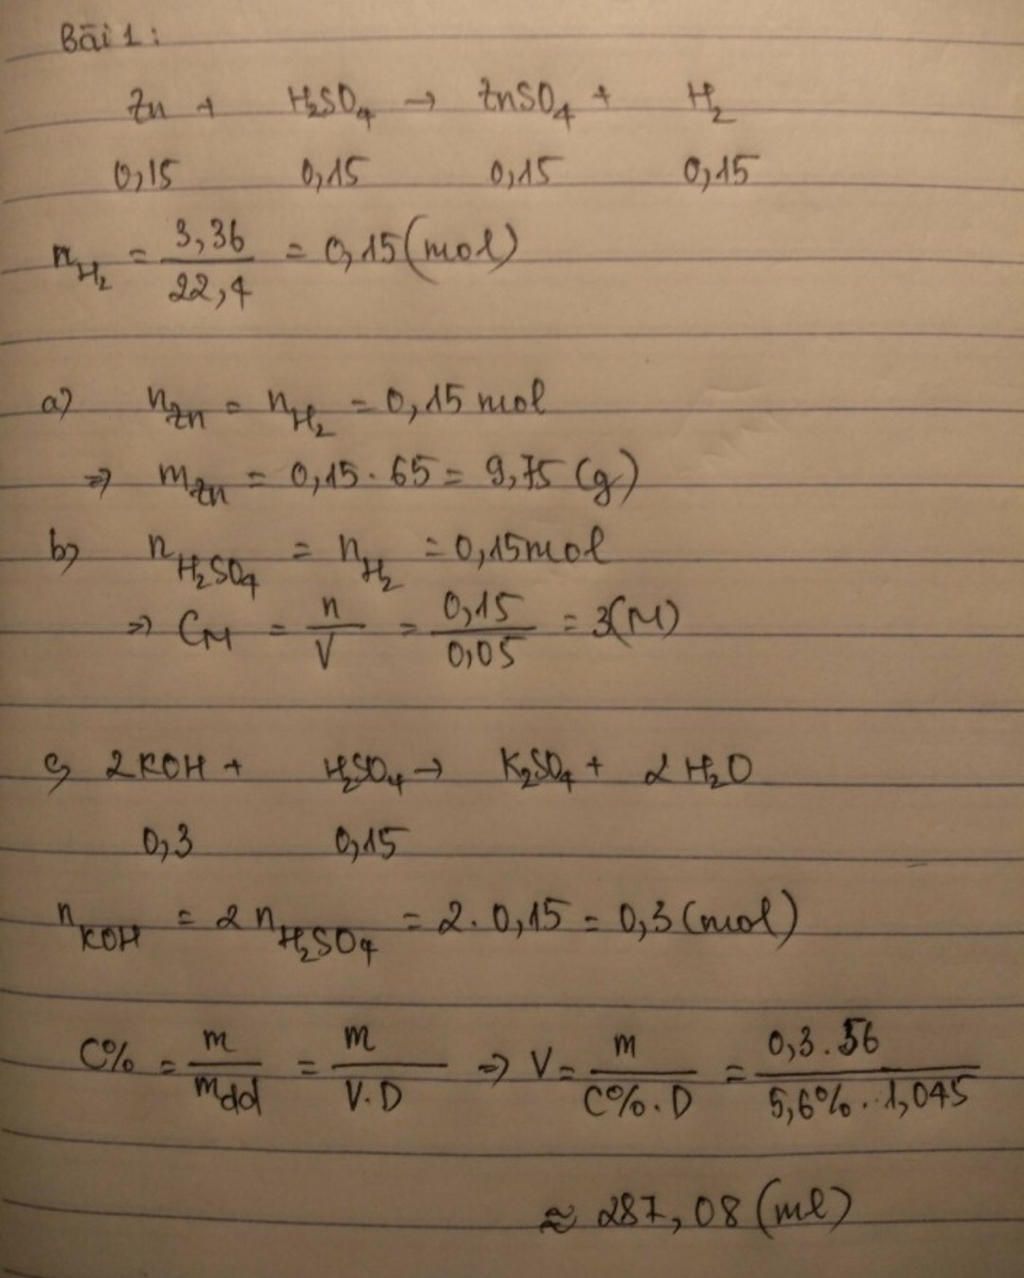 Bài 1:
Zn + H₂SO₄ → ZnSO₄ + H₂
0,15 0,15 0,15 0,15
n_H₂ = 3,36/22,4 = 0,15 (mol)
a) n_Zn = n_H₂ = 0,15 mol
=> m_Zn = 0,15 . 65 = 9,75 (g)
b) n_H₂SO₄ = n_H₂ = 0,15 mol
=> C_M = n/V = 0,15/0,05 = 3(M)
c) 2KOH + H₂SO₄ → K₂SO₄ + 2H₂O
0,3 0,15
n_KOH = 2n_H₂SO₄ = 2 . 0,15 = 0,3 (mol)
C% = m/mdd = m/V.D => V = m/C%.D = 0,3 . 56/5,6% . 1,045
≈ 287,08 (ml)